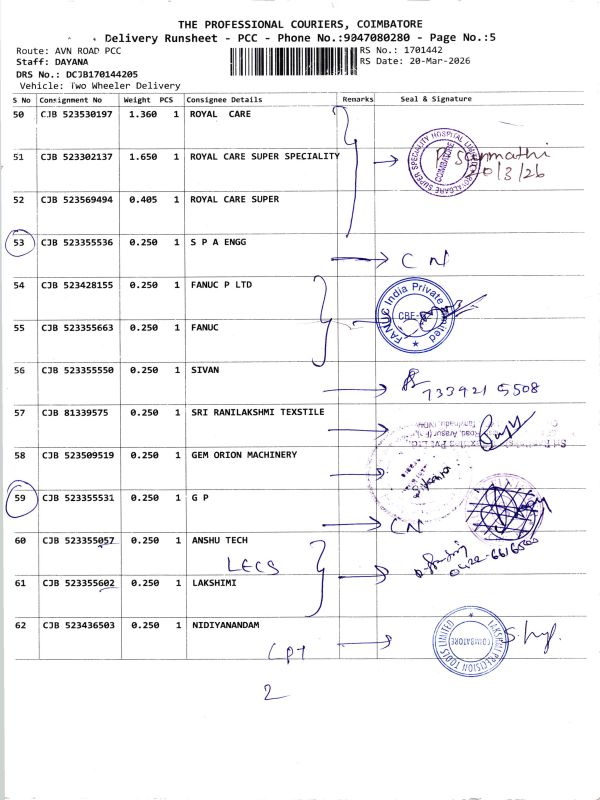 THE PROFESSIONAL COURIERS, COIMBATORE
Delivery Runsheet - PCC - Phone No.:9047080280 - Page No.:5
Route: AVN ROAD PCC RS No.: 1701442
Staff: DAYANA RS Date: 20-Mar-2026
DRS No.: DCJB170144205
Vehicle: Two Wheeler Delivery
S No Consignment No Weight PCS Consignee Details Remarks Seal & Signature
50 CJB 523530197 1.360 1 ROYAL CARE
51 CJB 523302137 1.650 1 ROYAL CARE SUPER SPECIALITY
COIMBATORE
52 CJB 523569494 0.405 1 ROYAL CARE SUPER
53 CJB 523355536 0.250 1 S P A ENGG
CN
54 CJB 523428155 0.250 1 FANUC P LTD
FANUC India Private Limited
CBE
55 CJB 523355663 0.250 1 FANUC
56 CJB 523355550 0.250 1 SIVAN
733921 5508
57 CJB 81339575 0.250 1 SRI RANILAKSHMI TEXSTILE
58 CJB 523509519 0.250 1 GEM ORION MACHINERY
59 CJB 523355531 0.250 1 G P
CN
60 CJB 523355057 0.250 1 ANSHU TECH
LECS
61 CJB 523355602 0.250 1 LAKSHIMI
62 CJB 523436503 0.250 1 NIDIYANANDAM
LAKSHMI PRECISION TOOLS LIMITED
COIMBATORE
CPT
2